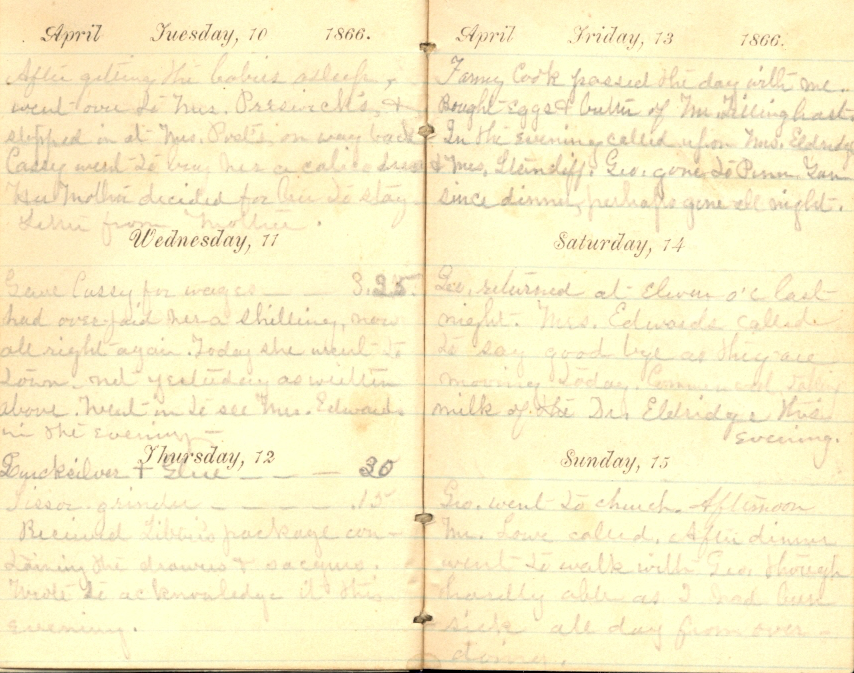 April Tuesday, 10 1866.
After getting the babies asleep,
went over to Mrs. Preswick's, &
stepped in at Mrs. Post's, on way back
Cassy went to buy her a calico dress
Her Mother decided for her to stay
Letter from Mother.
Wednesday, 11
Gave Cassy for wages — — 3.25.
had over-paid her a shilling, now
all right again. Today she went to
town. not yesterday as written
above. Went in to see Mrs. Edwards
in the evening —
Thursday, 12
Quicksilver + Glue — — — 30
Sissor grinder — — — .15
Received Libbie's package con-
taining the drawers & sacques.
Wrote to acknowledge it this
evening.
April Friday, 13 1866.
Fanny Cook passed the day with me.
Bought eggs & butter of Mr. Tillinghast.
In the evening called upon Mrs. Eldridge
& Mrs. Standiff. Geo. gone to Penn Yan
since dinner, perhaps gone all night.
Saturday, 14
Geo. returned at eleven o'c last
night. Mrs. Edwards called
to say good bye as they are
moving today. Commenced taking
milk of the Dr. Eldridge this
evening.
Sunday, 15
Geo. went to church. Afternoon
Mr. Lowe called. After dinner
went to walk with Geo. though
hardly able as I had been
sick all day from over-
doing.